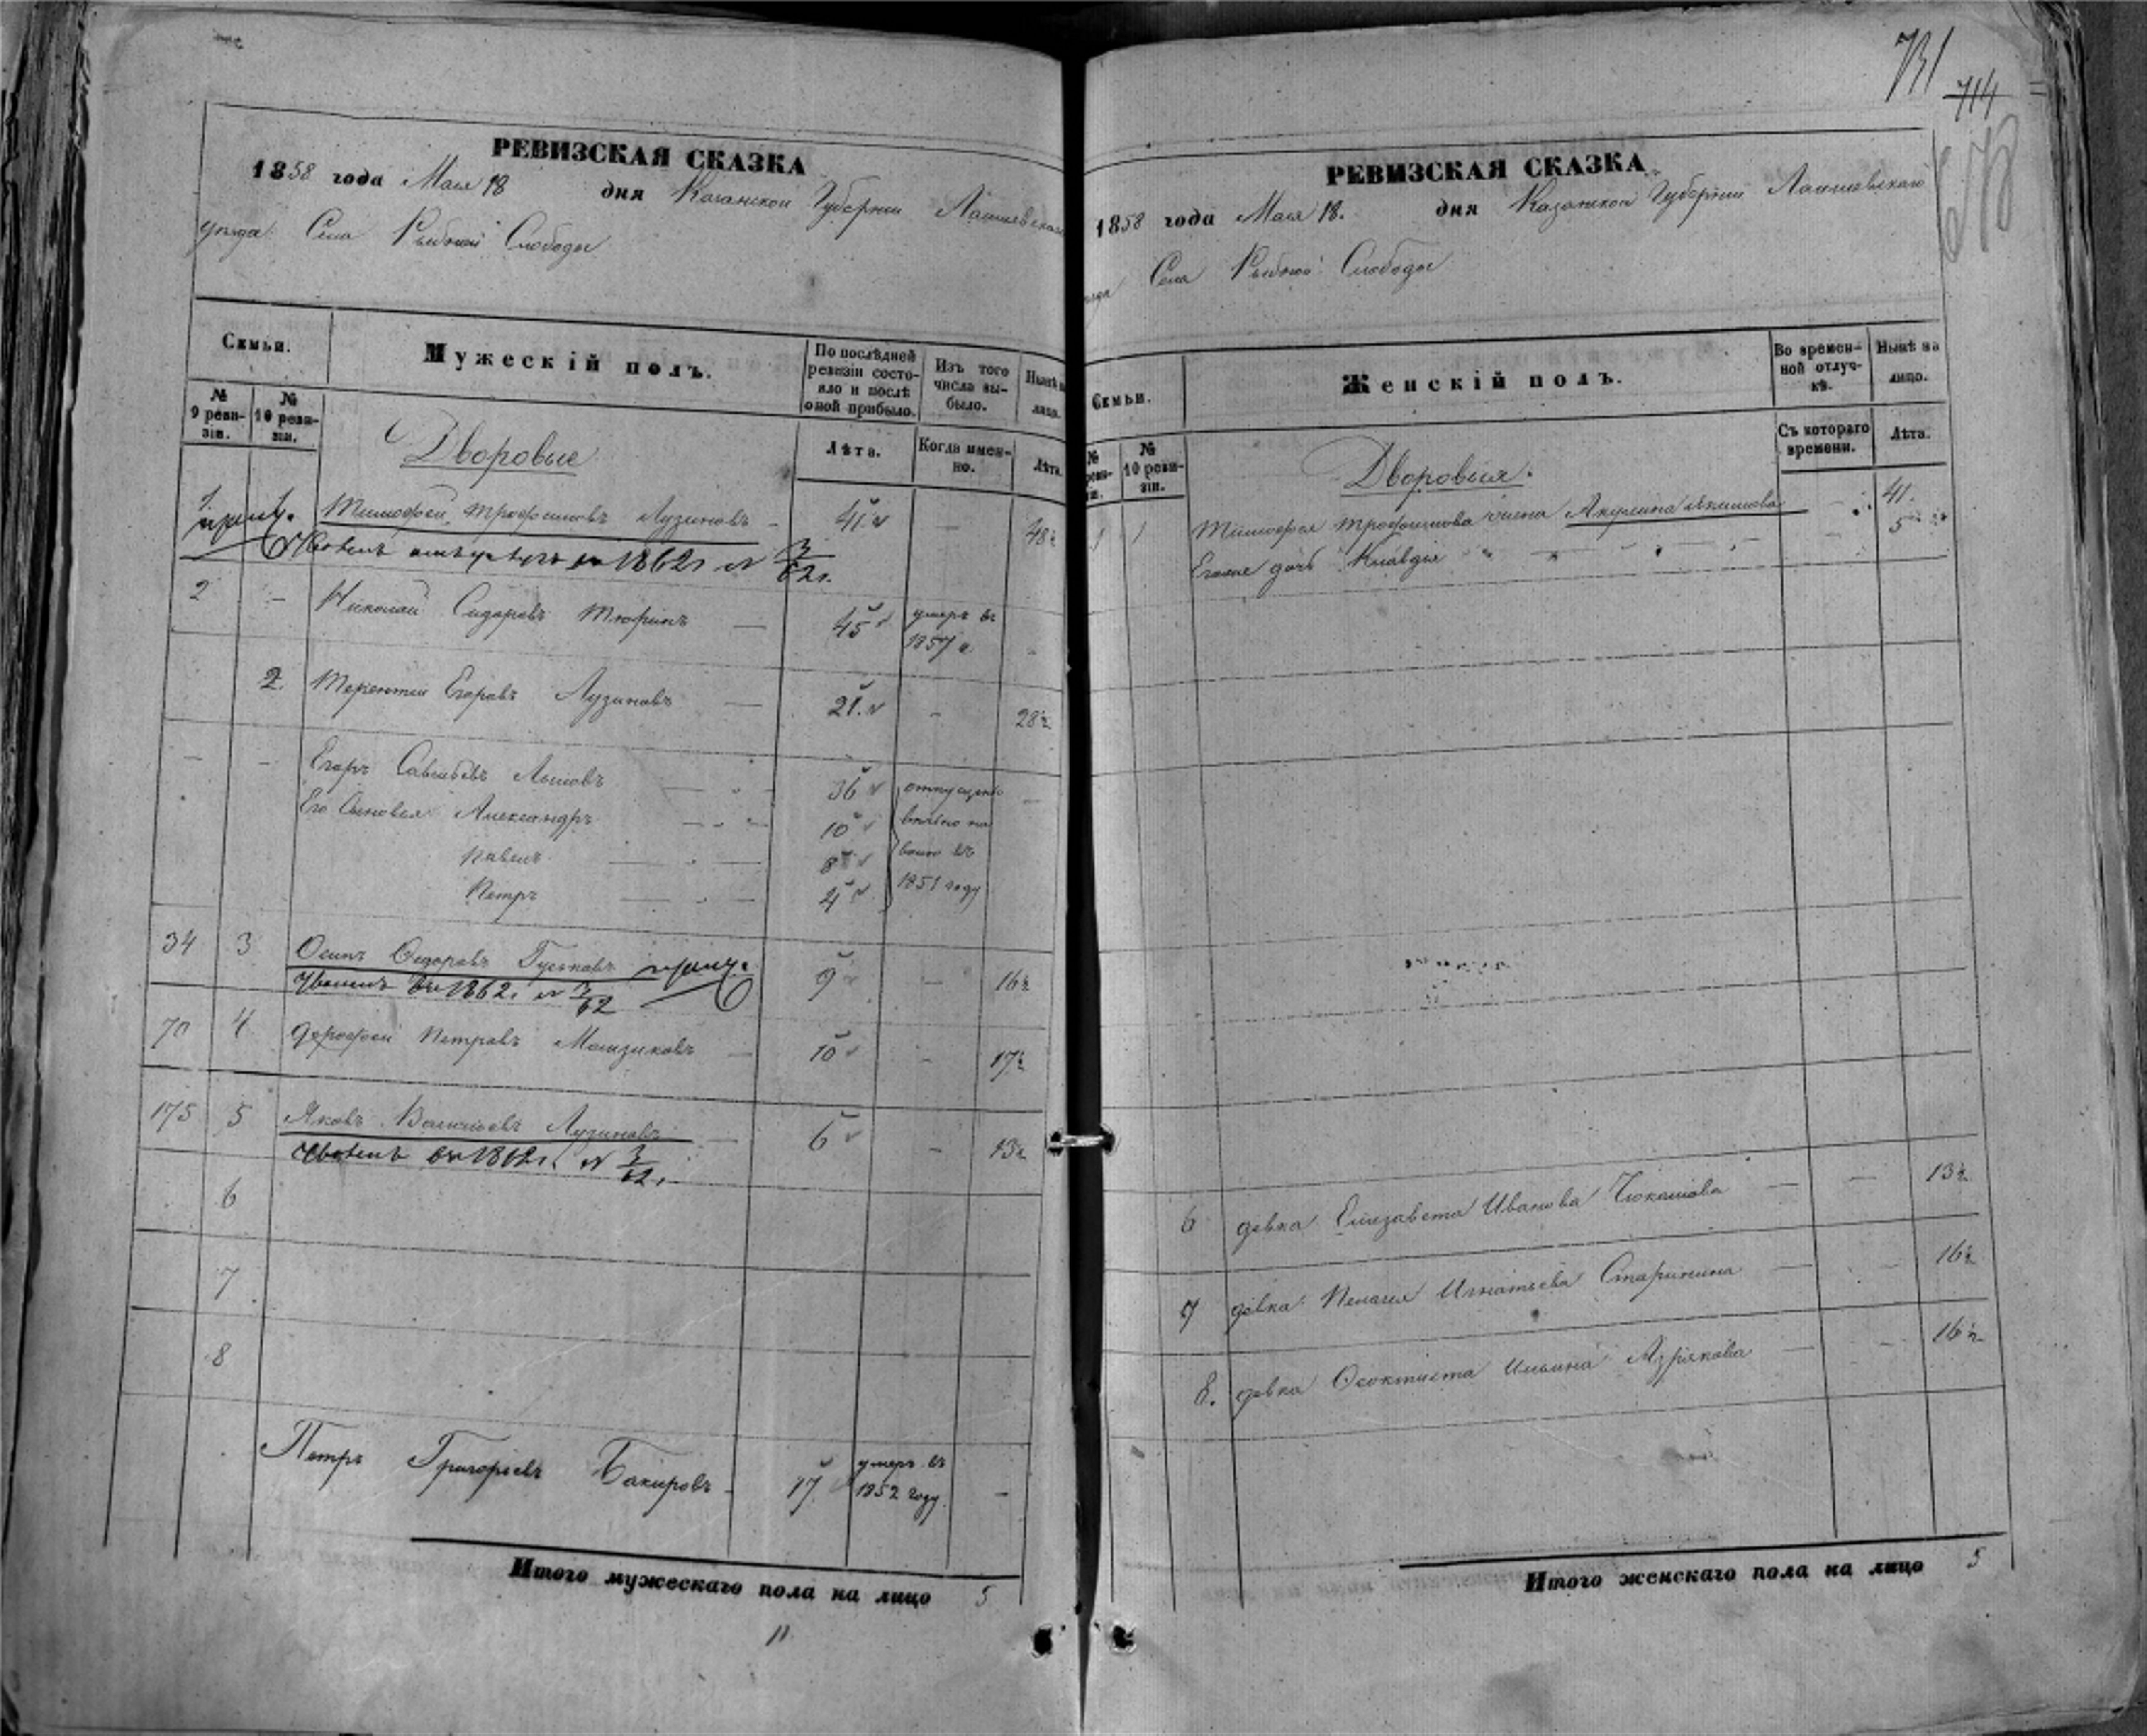 РЕВИЗСКАЯ СКАЗКА
1858 года Мая 18 дня Казанской Губернии Лаишевскаго
уезда Села Рыбной Слободы
Семьи.
Мужескій полъ.
По послѣдней ревизіи состояло и послѣ оной прибыло.
Изъ того числа выбыло.
Нынѣ на лицо.
№ 9 ревизіи.
№ 10 ревизіи.
Лѣта.
Когда именно.
Лѣта.
Дворовые
1. Тимофей Трофимовъ Лузиновъ 41 — 48
1862 № 3/62
2 — Николай Сидоровъ Тюринъ — 45 умеръ въ 1857 —
2. Терентій Егоровъ Лузиновъ — 21 — 28
— — Егоръ Савельевъ 36 отпущены
Его Сыновья Александръ 10 вѣчно на
Павелъ 8 волю въ
Петръ 4 1851 году
34 3 Осипъ Федоровъ Гуськовъ 9 — 16
1862 № 3/62
70 4 Дорофей Петровъ — 10 — 17
175 5 Яковъ Васильевъ Лузиновъ — 6 — 13
1862 № 3/62
6
7
8
Петръ Григорьевъ Бакировъ 17 умеръ въ 1852 году. —
Итого мужескаго пола на лицо 5
11
731
714
РЕВИЗСКАЯ СКАЗКА
1858 года Мая 18. дня Казанской Губерніи Лаишевскаго
Села Рыбной Слободы
Семьи.
Женскій полъ.
Во временной отлучкѣ.
Нынѣ на лицо.
№ 10 ревизіи.
Съ котораго времени.
Лѣта.
Дворовыя.
1 1 Тимофея Трофимова жена Акулина Акимова 41.
Его дочь Клавдія 5
6 девка Елизавета Иванова — — 13
7 девка Пелагея Игнатьева Старинина — — 16
8. девка Феоктиста Ильина — — 16
Итого женскаго пола на лицо 5